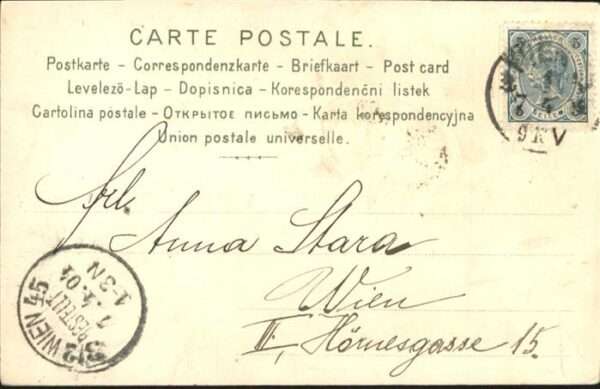 CARTE POSTALE.
Postkarte – Correspondenzkarte – Briefkaart – Post card
Levelező-Lap – Dopisnica – Korespondenční listek
Cartolina postale – Открытое письмо – Karta korespondencyjna
Union postale universelle.
9 V
Frl.
Anna Stara
Wien
III, Hörnesgasse 15.
3/2 WIEN 45
BESTELLT
1-3N